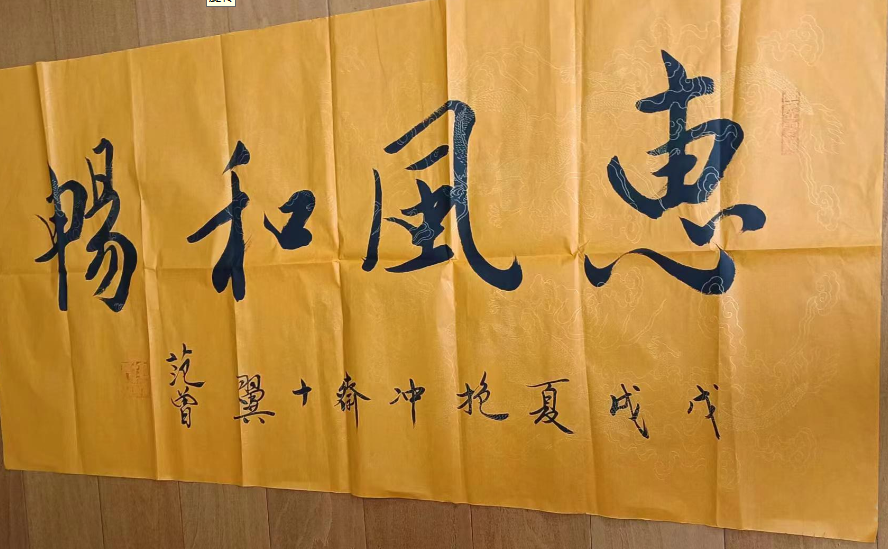 惠風和暢
戊戌夏抱冲齋十翼
范曾